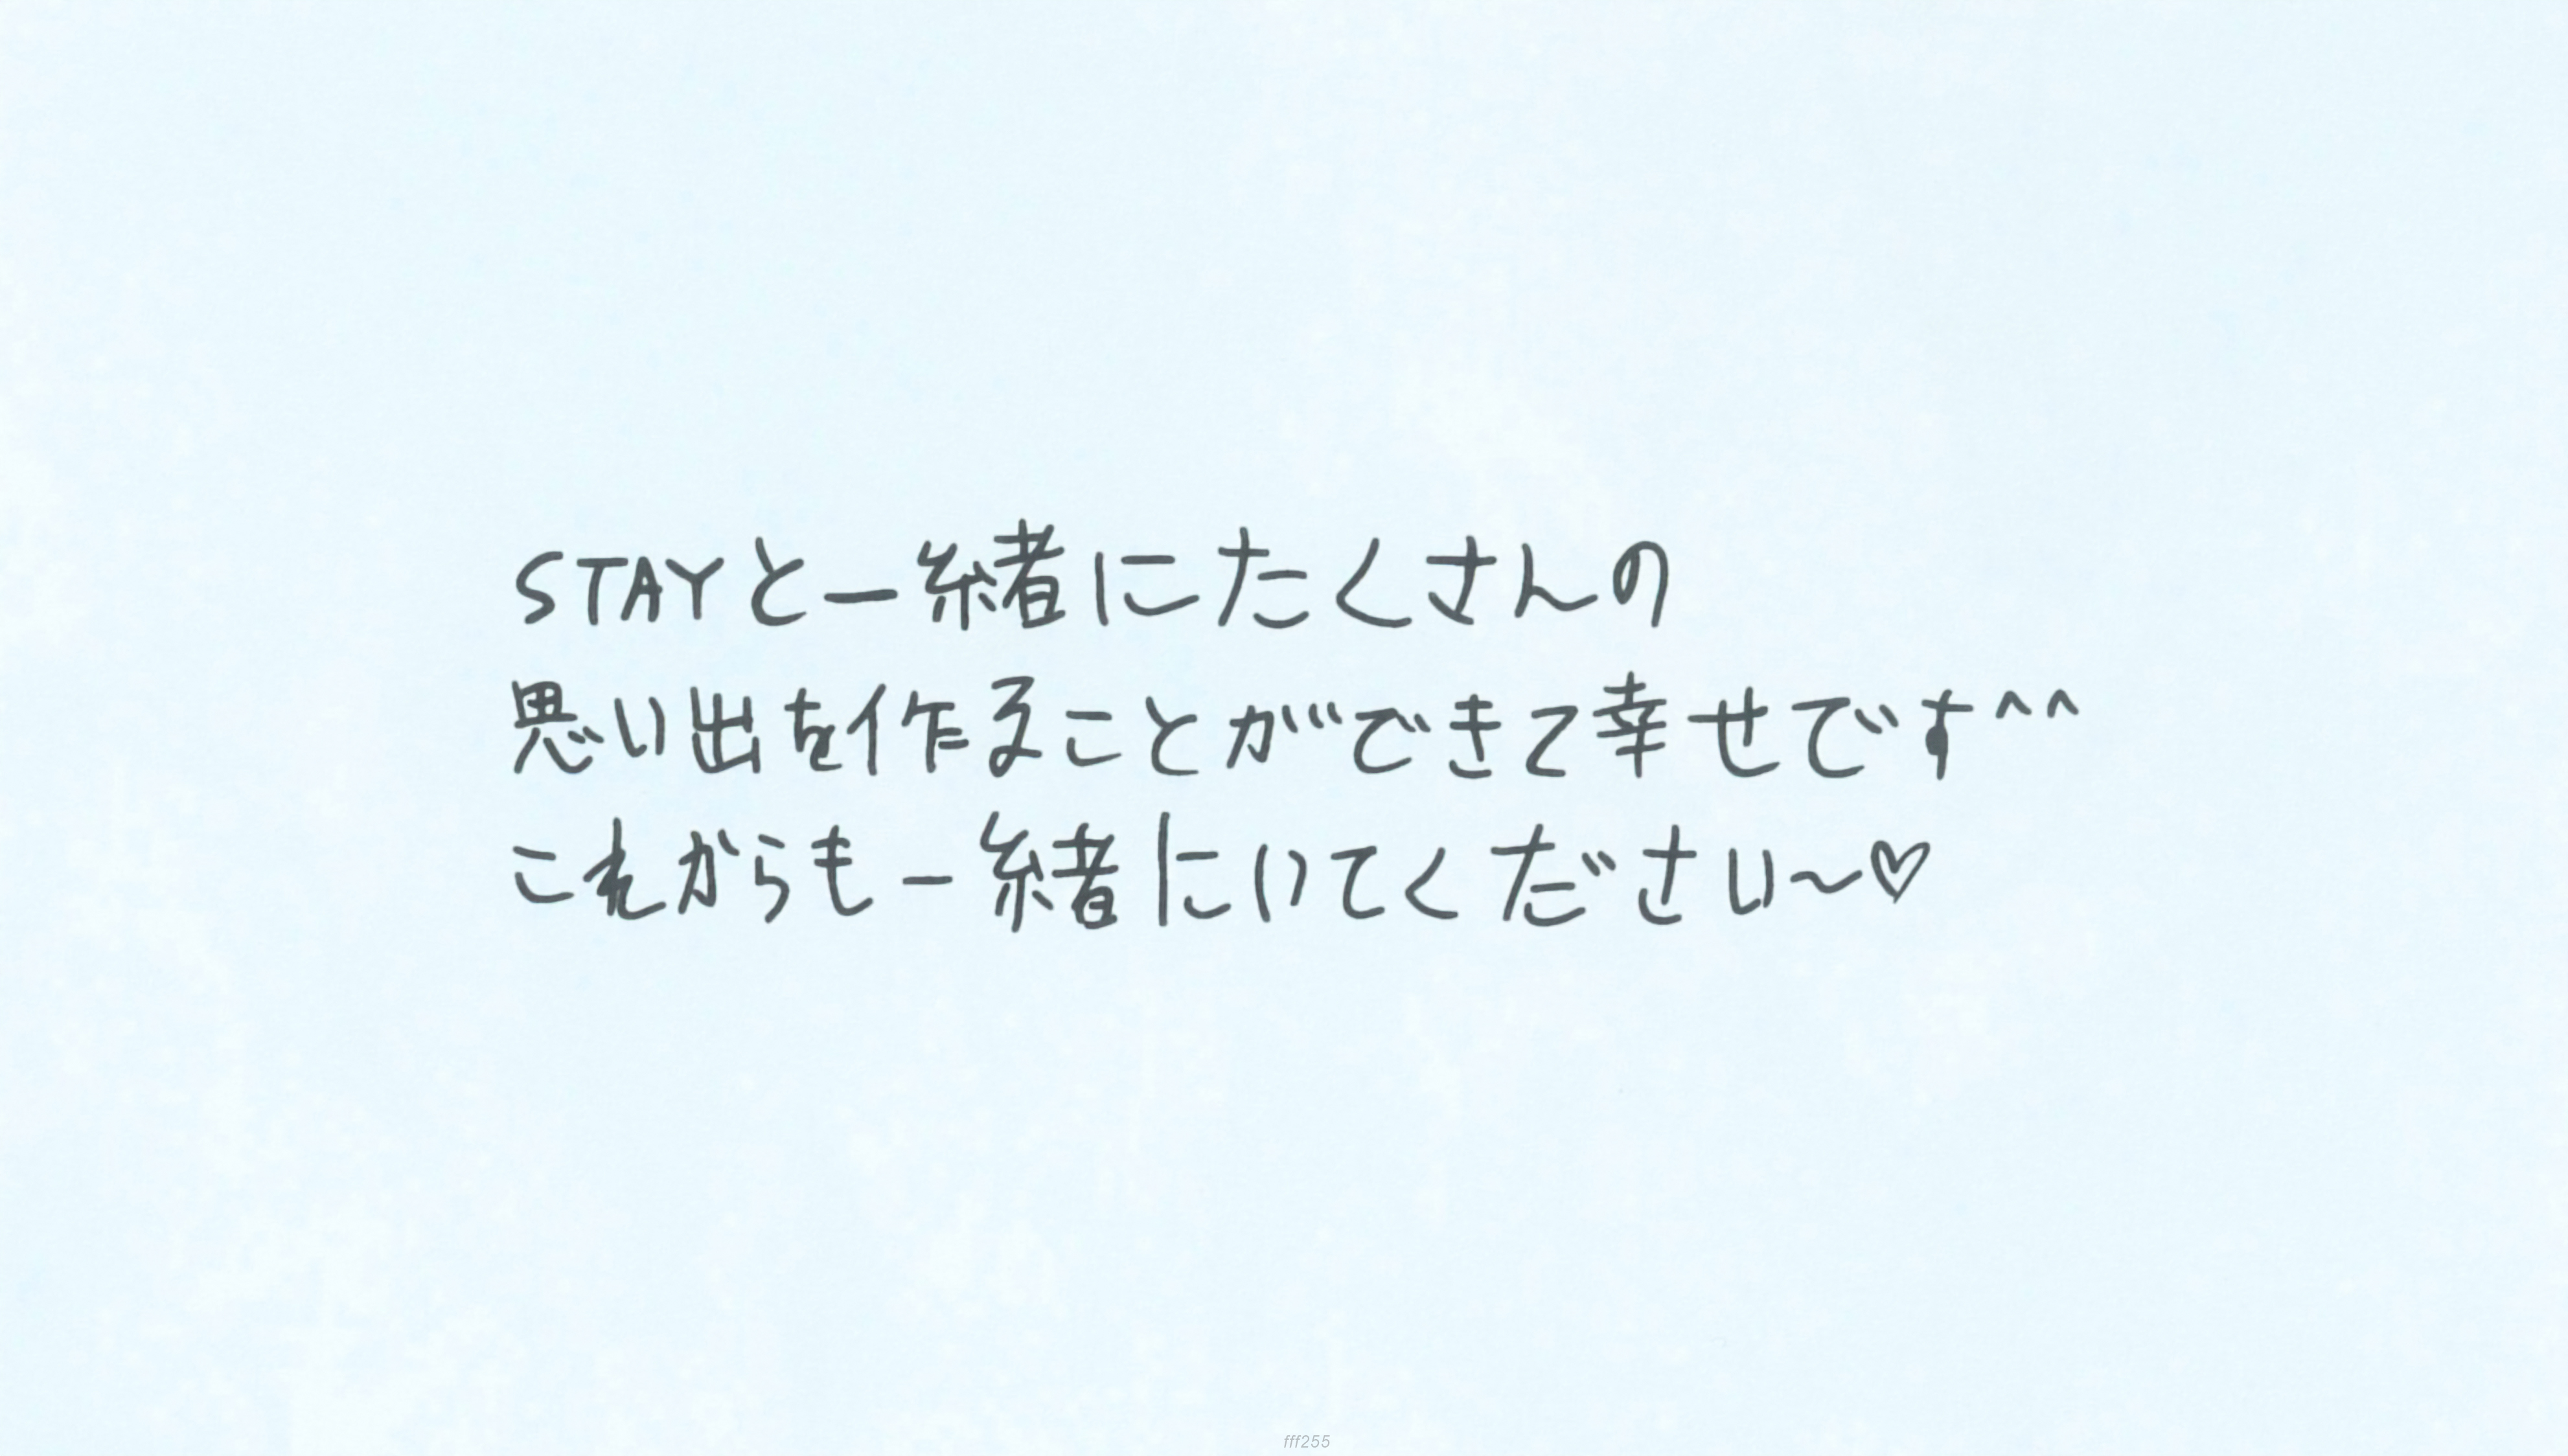 STAYと一緒にたくさんの
思い出を作ることができて幸せです^^
これからも一緒にいてください〜♡
fff255